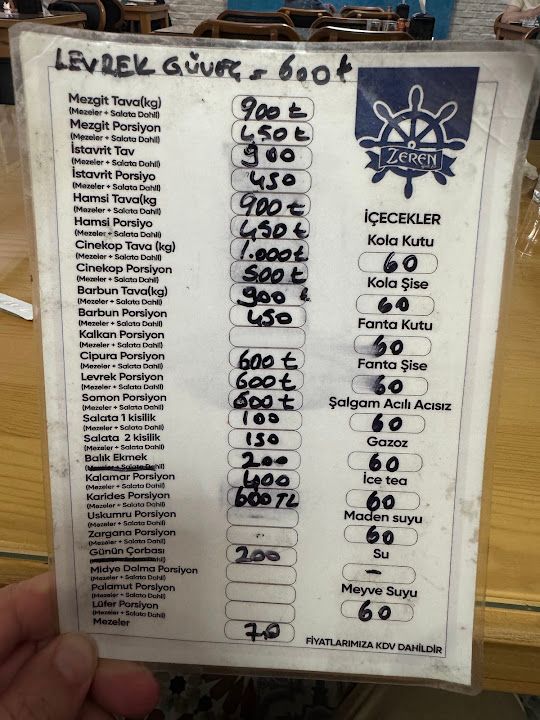 LEVREK GÜVEÇ = 600 ₺
Mezgit Tava(kg) 900 ₺
(Mezeler + Salata Dahil)
Mezgit Porsiyon 450 ₺
(Mezeler + Salata Dahil)
İstavrit Tav 900
(Mezeler + Salata Dahil)
İstavrit Porsiyo 450
(Mezeler + Salata Dahil)
Hamsi Tava(kg 900 ₺
(Mezeler + Salata Dahil)
Hamsi Porsiyo 450 ₺
(Mezeler + Salata Dahil)
Cinekop Tava (kg) 1.000₺
(Mezeler + Salata Dahil)
Cinekop Porsiyon 500₺
(Mezeler + Salata Dahil)
Barbun Tava(kg) 900 ₺
(Mezeler + Salata Dahil)
Barbun Porsiyon 450
(Mezeler + Salata Dahil)
Kalkan Porsiyon
(Mezeler + Salata Dahil)
Cipura Porsiyon 600₺
(Mezeler + Salata Dahil)
Levrek Porsiyon 600₺
(Mezeler + Salata Dahil)
Somon Porsiyon 600₺
(Mezeler + Salata Dahil)
Salata 1 kisilik 100
(Mezeler + Salata Dahil)
Salata 2 kisilik 150
(Mezeler + Salata Dahil)
Balık Ekmek 200
(Mezeler + Salata Dahil)
Kalamar Porsiyon 400
(Mezeler + Salata Dahil)
Karides Porsiyon 600TL
(Mezeler + Salata Dahil)
Uskumru Porsiyon
(Mezeler + Salata Dahil)
Zargana Porsiyon
(Mezeler + Salata Dahil)
Günün Çorbası 200
(Mezeler + Salata Dahil)
Midye Dolma Porsiyon
(Mezeler + Salata Dahil)
Palamut Porsiyon
(Mezeler + Salata Dahil)
Lüfer Porsiyon
(Mezeler + Salata Dahil)
Mezeler 70
ZEREN
İÇECEKLER
Kola Kutu
60
Kola Şise
60
Fanta Kutu
60
Fanta Şise
60
Şalgam Acılı Acısız
60
Gazoz
60
İce tea
60
Maden suyu
60
Su
-
Meyve Suyu
60
FİYATLARIMIZA KDV DAHİLDİR